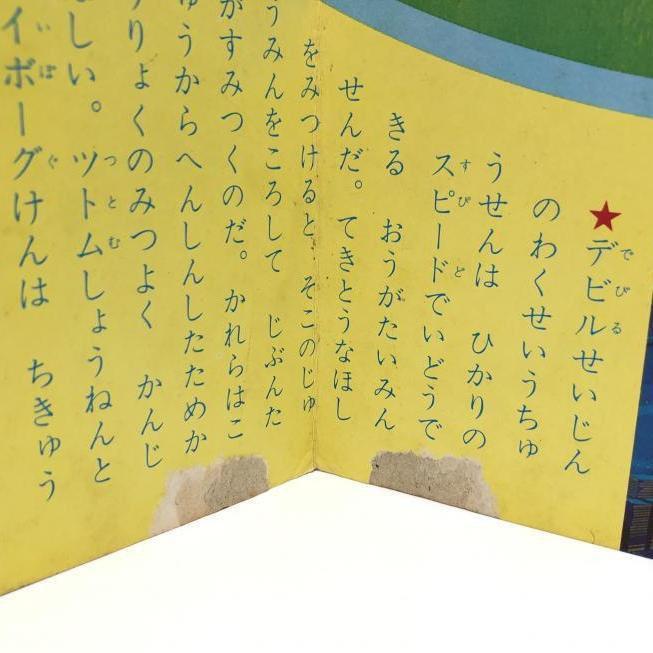 ★デビルせいじん
でびる
のわくせいうちゅ
うせんは ひかりの
スピードでいどうで
すぴ ど
きる おうがたいみん
せんだ。てきとうなほし
をみつけると そこのじゅ
うみんをころして じぶんた
がすみつくのだ。かれらはこ
ゅうからへんしんしたためか
りょくのみつよく かんじ
しい。ツトムしょうねんと
つとむ
イボーグけんは ちきゅう
いぼ ぐ